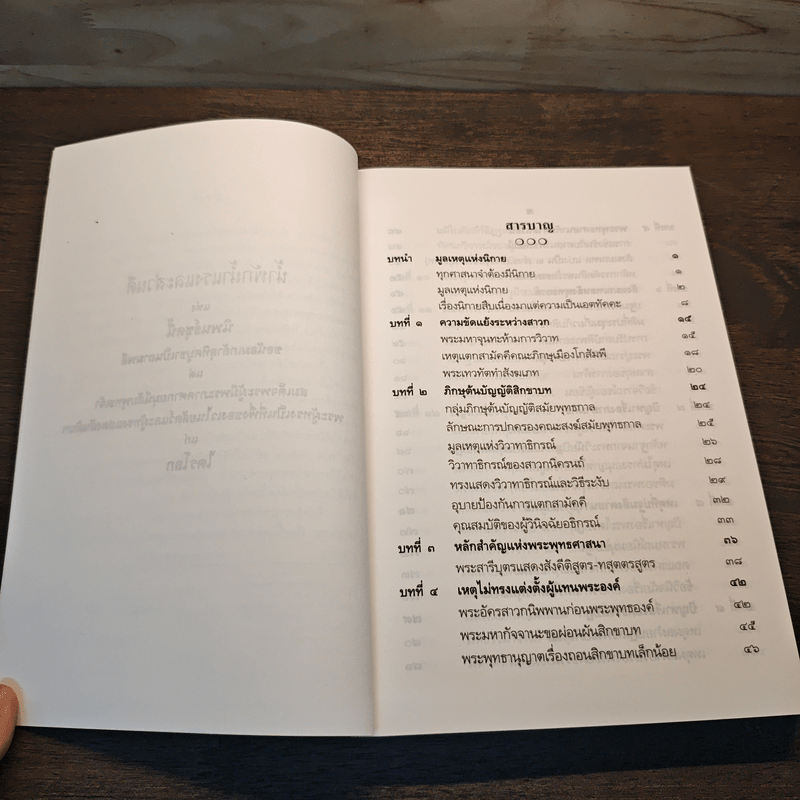 สารบาญ
๐๐๐
บทนำ มูลเหตุแห่งนิกาย ๑
ทุกศาสนาจำต้องมีนิกาย ๑
มูลเหตุแห่งนิกาย ๒
เรื่องนิกายสืบเนื่องมาแต่ความเป็นเอตทัคคะ ๘
บทที่ ๑ ความขัดแย้งระหว่างสาวก ๑๕
พระมหาจุนทะห้ามการวิวาท ๑๕
เหตุแตกสามัคคีคณะภิกษุเมืองโกสัมพี ๑๘
พระเทวทัตทำสังฆเภท ๒๐
บทที่ ๒ ภิกษุต้นบัญญัติสิกขาบท ๒๔
กลุ่มภิกษุต้นบัญญัติสมัยพุทธกาล ๒๔
ลักษณะการปกครองคณะสงฆ์สมัยพุทธกาล ๒๕
มูลเหตุแห่งวิวาทาธิกรณ์ ๒๖
วิวาทาธิกรณ์ของสาวกนิครนถ์ ๒๘
ทรงแสดงวิวาทาธิกรณ์และวิธีระงับ ๒๙
อุบายป้องกันการแตกสามัคคี ๓๒
คุณสมบัติของผู้วินิจฉัยอธิกรณ์ ๓๓
บทที่ ๓ หลักสำคัญแห่งพระพุทธศาสนา ๓๖
พระสารีบุตรแสดงสังคีติสูตร-ทสุตตรสูตร ๓๘
บทที่ ๔ เหตุไม่ทรงแต่งตั้งผู้แทนพระองค์ ๔๒
พระอัครสาวกนิพพานก่อนพระพุทธองค์ ๔๒
พระมหากัจจานะขอผ่อนผันสิกขาบท ๔๕
พระพุทธานุญาตเรื่องถอนสิกขาบทเล็กน้อย ๔๖